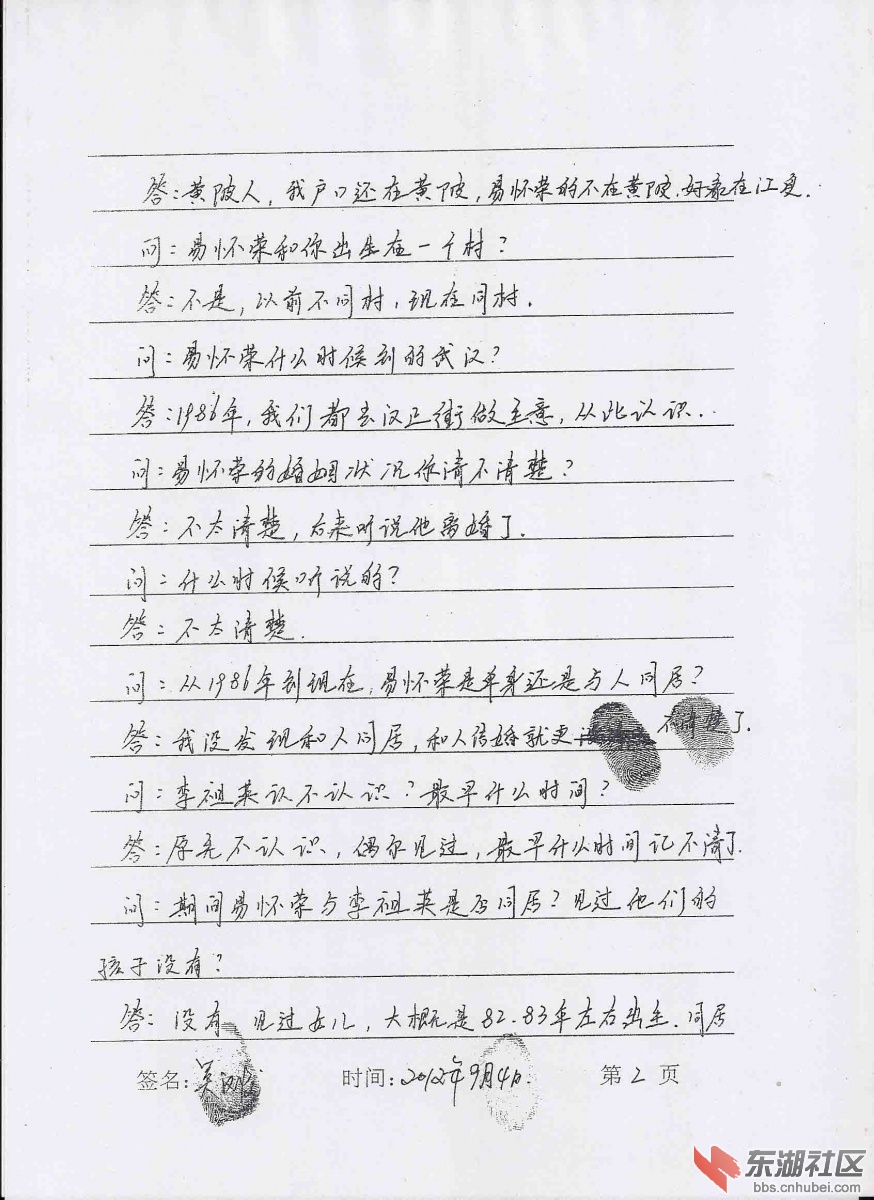 答:黄陂人,我户口还在黄陂,易怀荣的不在黄陂.好象在江夏.
问:易怀荣和你出生在一个村?
答:不是,以前不同村,现在同村.
问:易怀荣什么时候到的武汉?
答:1986年,我们都去汉正街做生意,从此认识..
问:易怀荣的婚姻状况你清不清楚?
答:不太清楚,后来听说他离婚了.
问:什么时候听说的?
答:不太清楚.
问:从1986年到现在,易怀荣是单身还是与人同居?
答:我没发现和人同居,和人结婚就更 不清楚了.
问:李祖英认不认识?最早什么时间?
答:原先不认识,偶尔见过,最早什么时间记不清了.
问:期间易怀荣与李祖英是否同居?见过他们的
孩子没有?
答:没有 见过女儿,大概是82.83年左右出生.同居
签名:吴 时间:2012年9月4日. 第2页
东湖社区
bbs.cnhubei.com